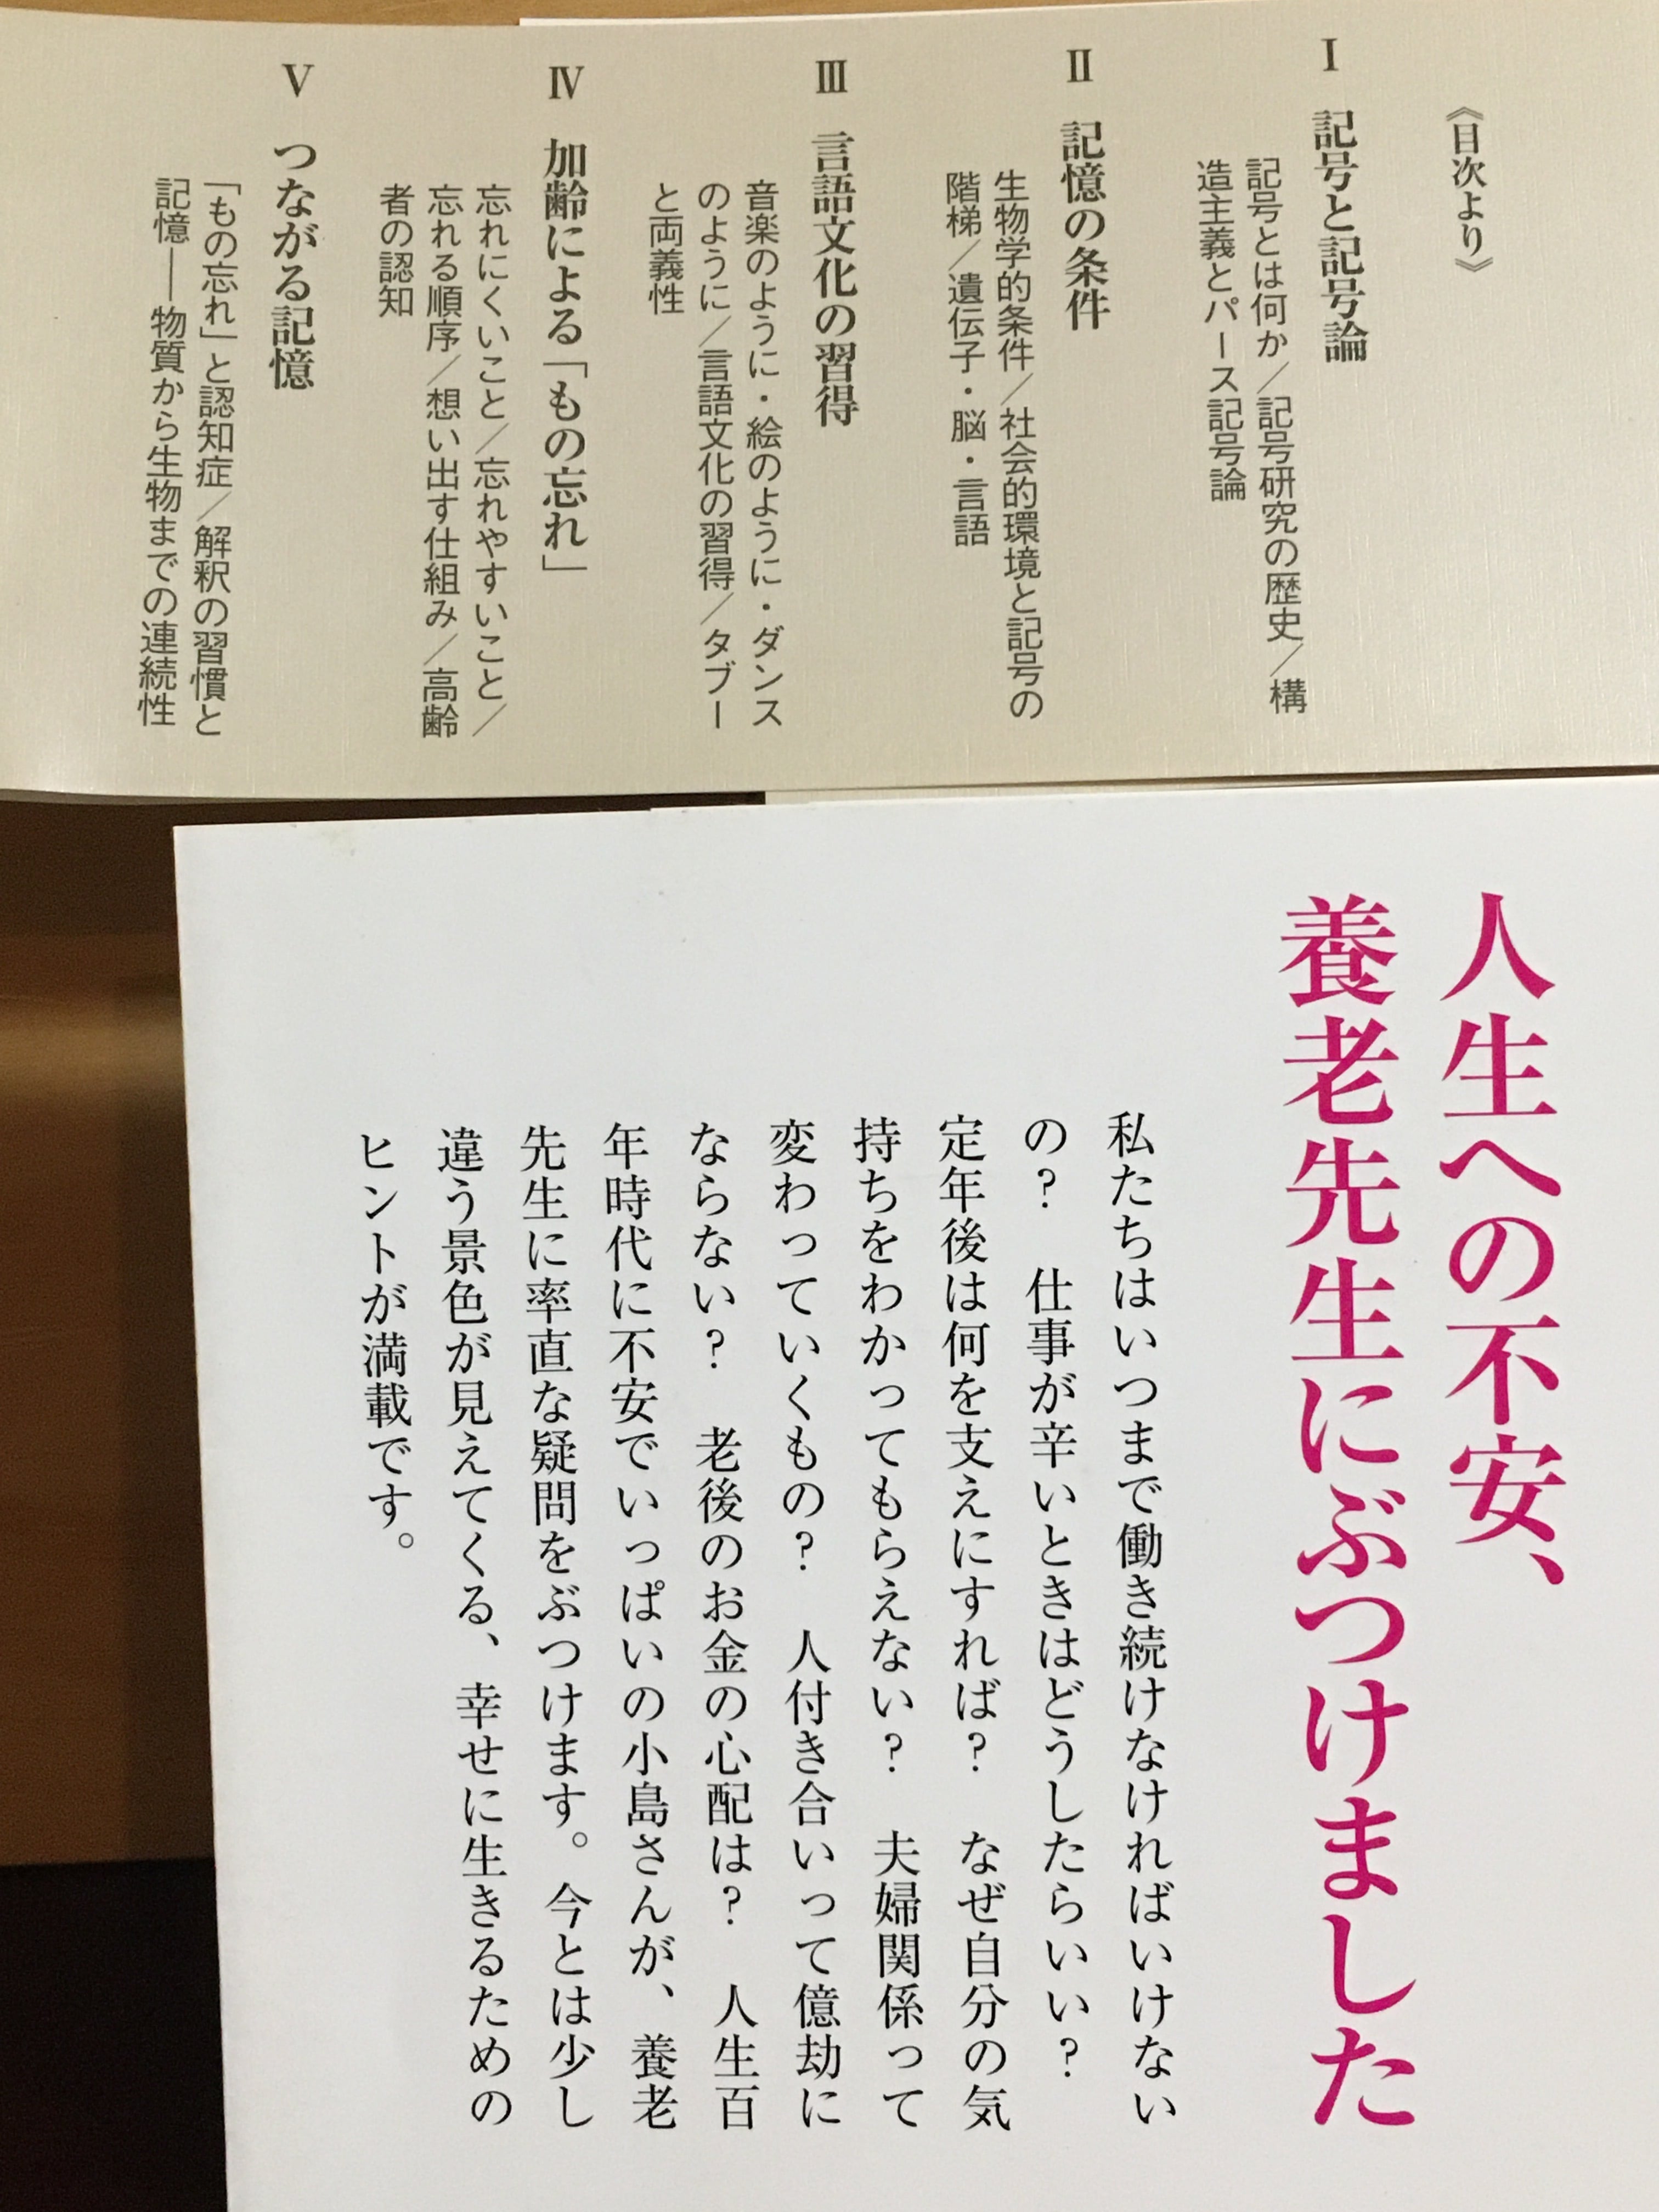 《目次より》
Ⅰ 記号と記号論
記号とは何か／記号研究の歴史／構
造主義とパース記号論
Ⅱ 記憶の条件
生物学的条件／社会的環境と記号の
階梯／遺伝子・脳・言語
Ⅲ 言語文化の習得
音楽のように・絵のように・ダンス
のように／言語文化の習得／タブー
と両義性
Ⅳ 加齢による「もの忘れ」
忘れにくいこと／忘れやすいこと／
忘れる順序／想い出す仕組み／高齢
者の認知
Ⅴ つながる記憶
「もの忘れ」と認知症／解釈の習慣と
記憶――物質から生物までの連続性
人生への不安、
養老先生にぶつけました
私たちはいつまで働き続けなければいけない
の？　仕事が辛いときはどうしたらいい？
定年後は何を支えにすれば？　なぜ自分の気
持ちをわかってもらえない？　夫婦関係って
変わっていくもの？　人付き合いって億劫に
ならない？　老後のお金の心配は？　人生百
年時代に不安でいっぱいの小島さんが、養老
先生に率直な疑問をぶつけます。今とは少し
違う景色が見えてくる、幸せに生きるための
ヒントが満載です。